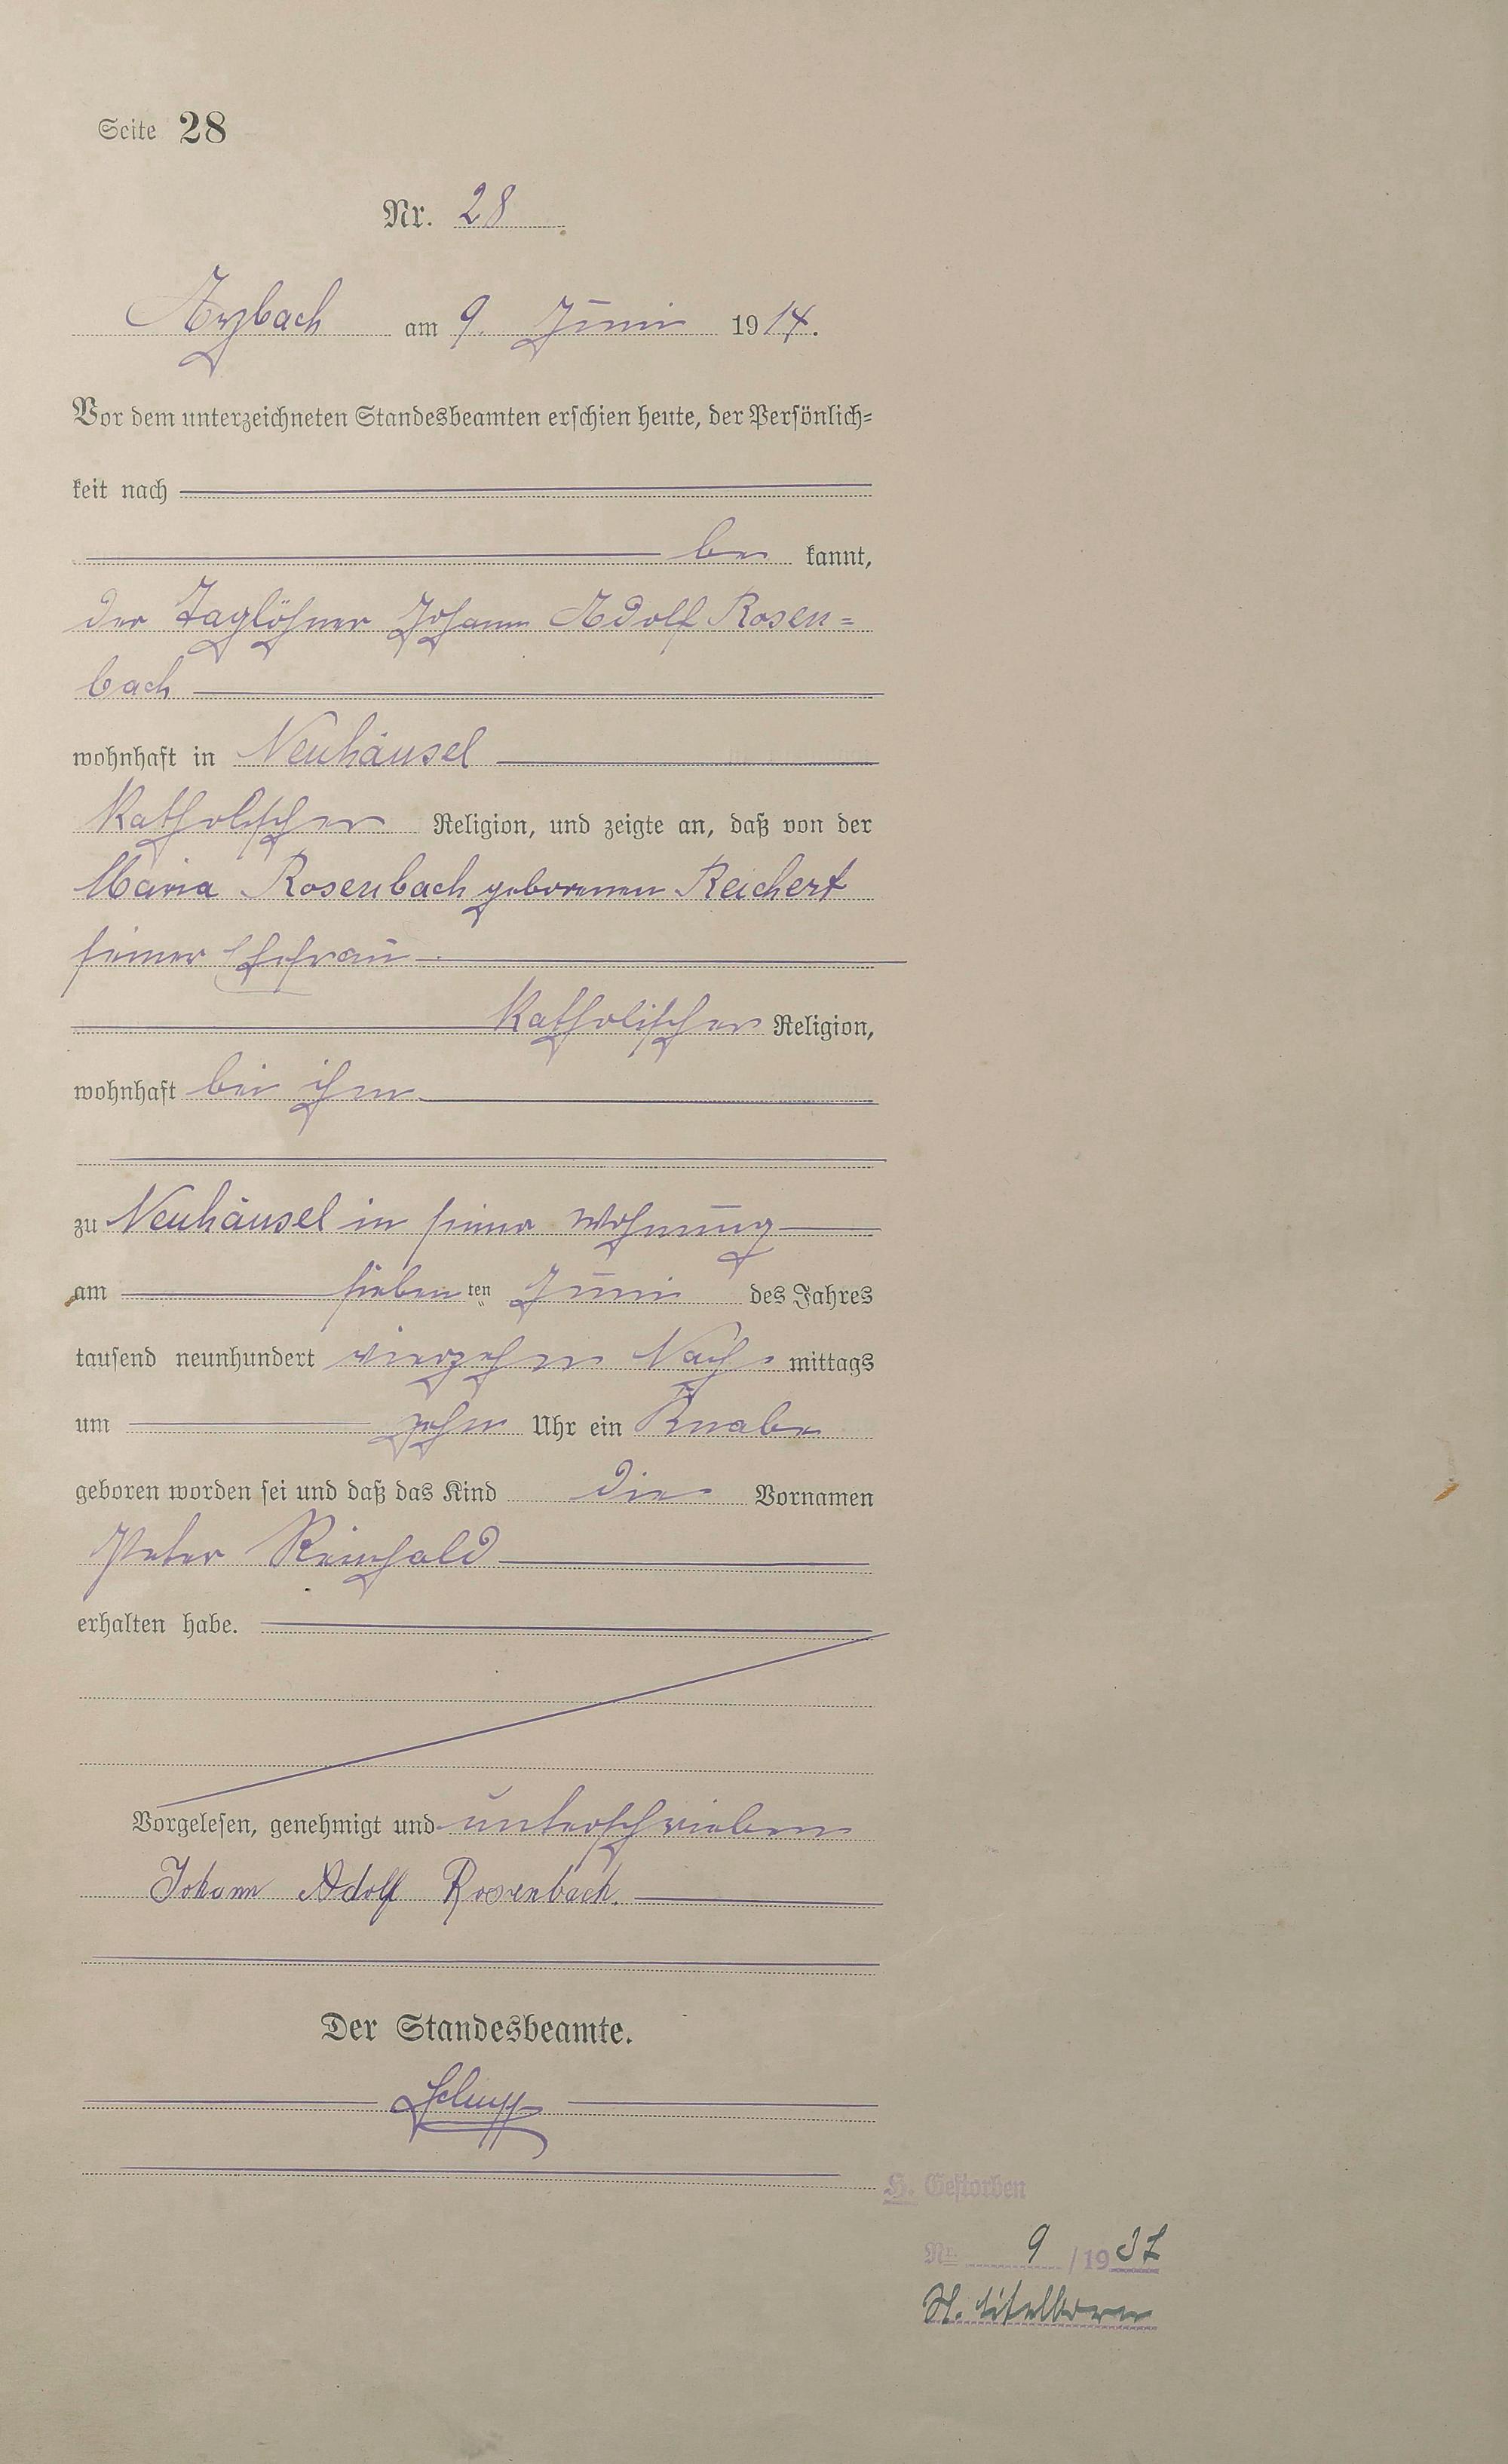 Seite 28
Nr. 28
Arzbach am 9. Juni 1914.
Vor dem unterzeichneten Standesbeamten erschien heute, der Persönlich=
keit nach
be kannt,
der Taglöhner Johann Adolf Rosen=
bach
wohnhaft in Neuhäusel
katholischer Religion, und zeigte an, daß von der
Maria Rosenbach geborenen Reichert
seiner Ehefrau
katholischer Religion,
wohnhaft bei ihm
zu Neuhäusel in seiner Wohnung
am siebenten Juni des Jahres
tausend neunhundert vierzehn Nach mittags
um zehn Uhr ein Knabe
geboren worden sei und daß das Kind die Vornamen
Peter Reinhold
erhalten habe.
Vorgelesen, genehmigt und unterschrieben
Johann Adolf Rosenbach.
Der Standesbeamte.
H. Gestorben
Nr. 9 / 19